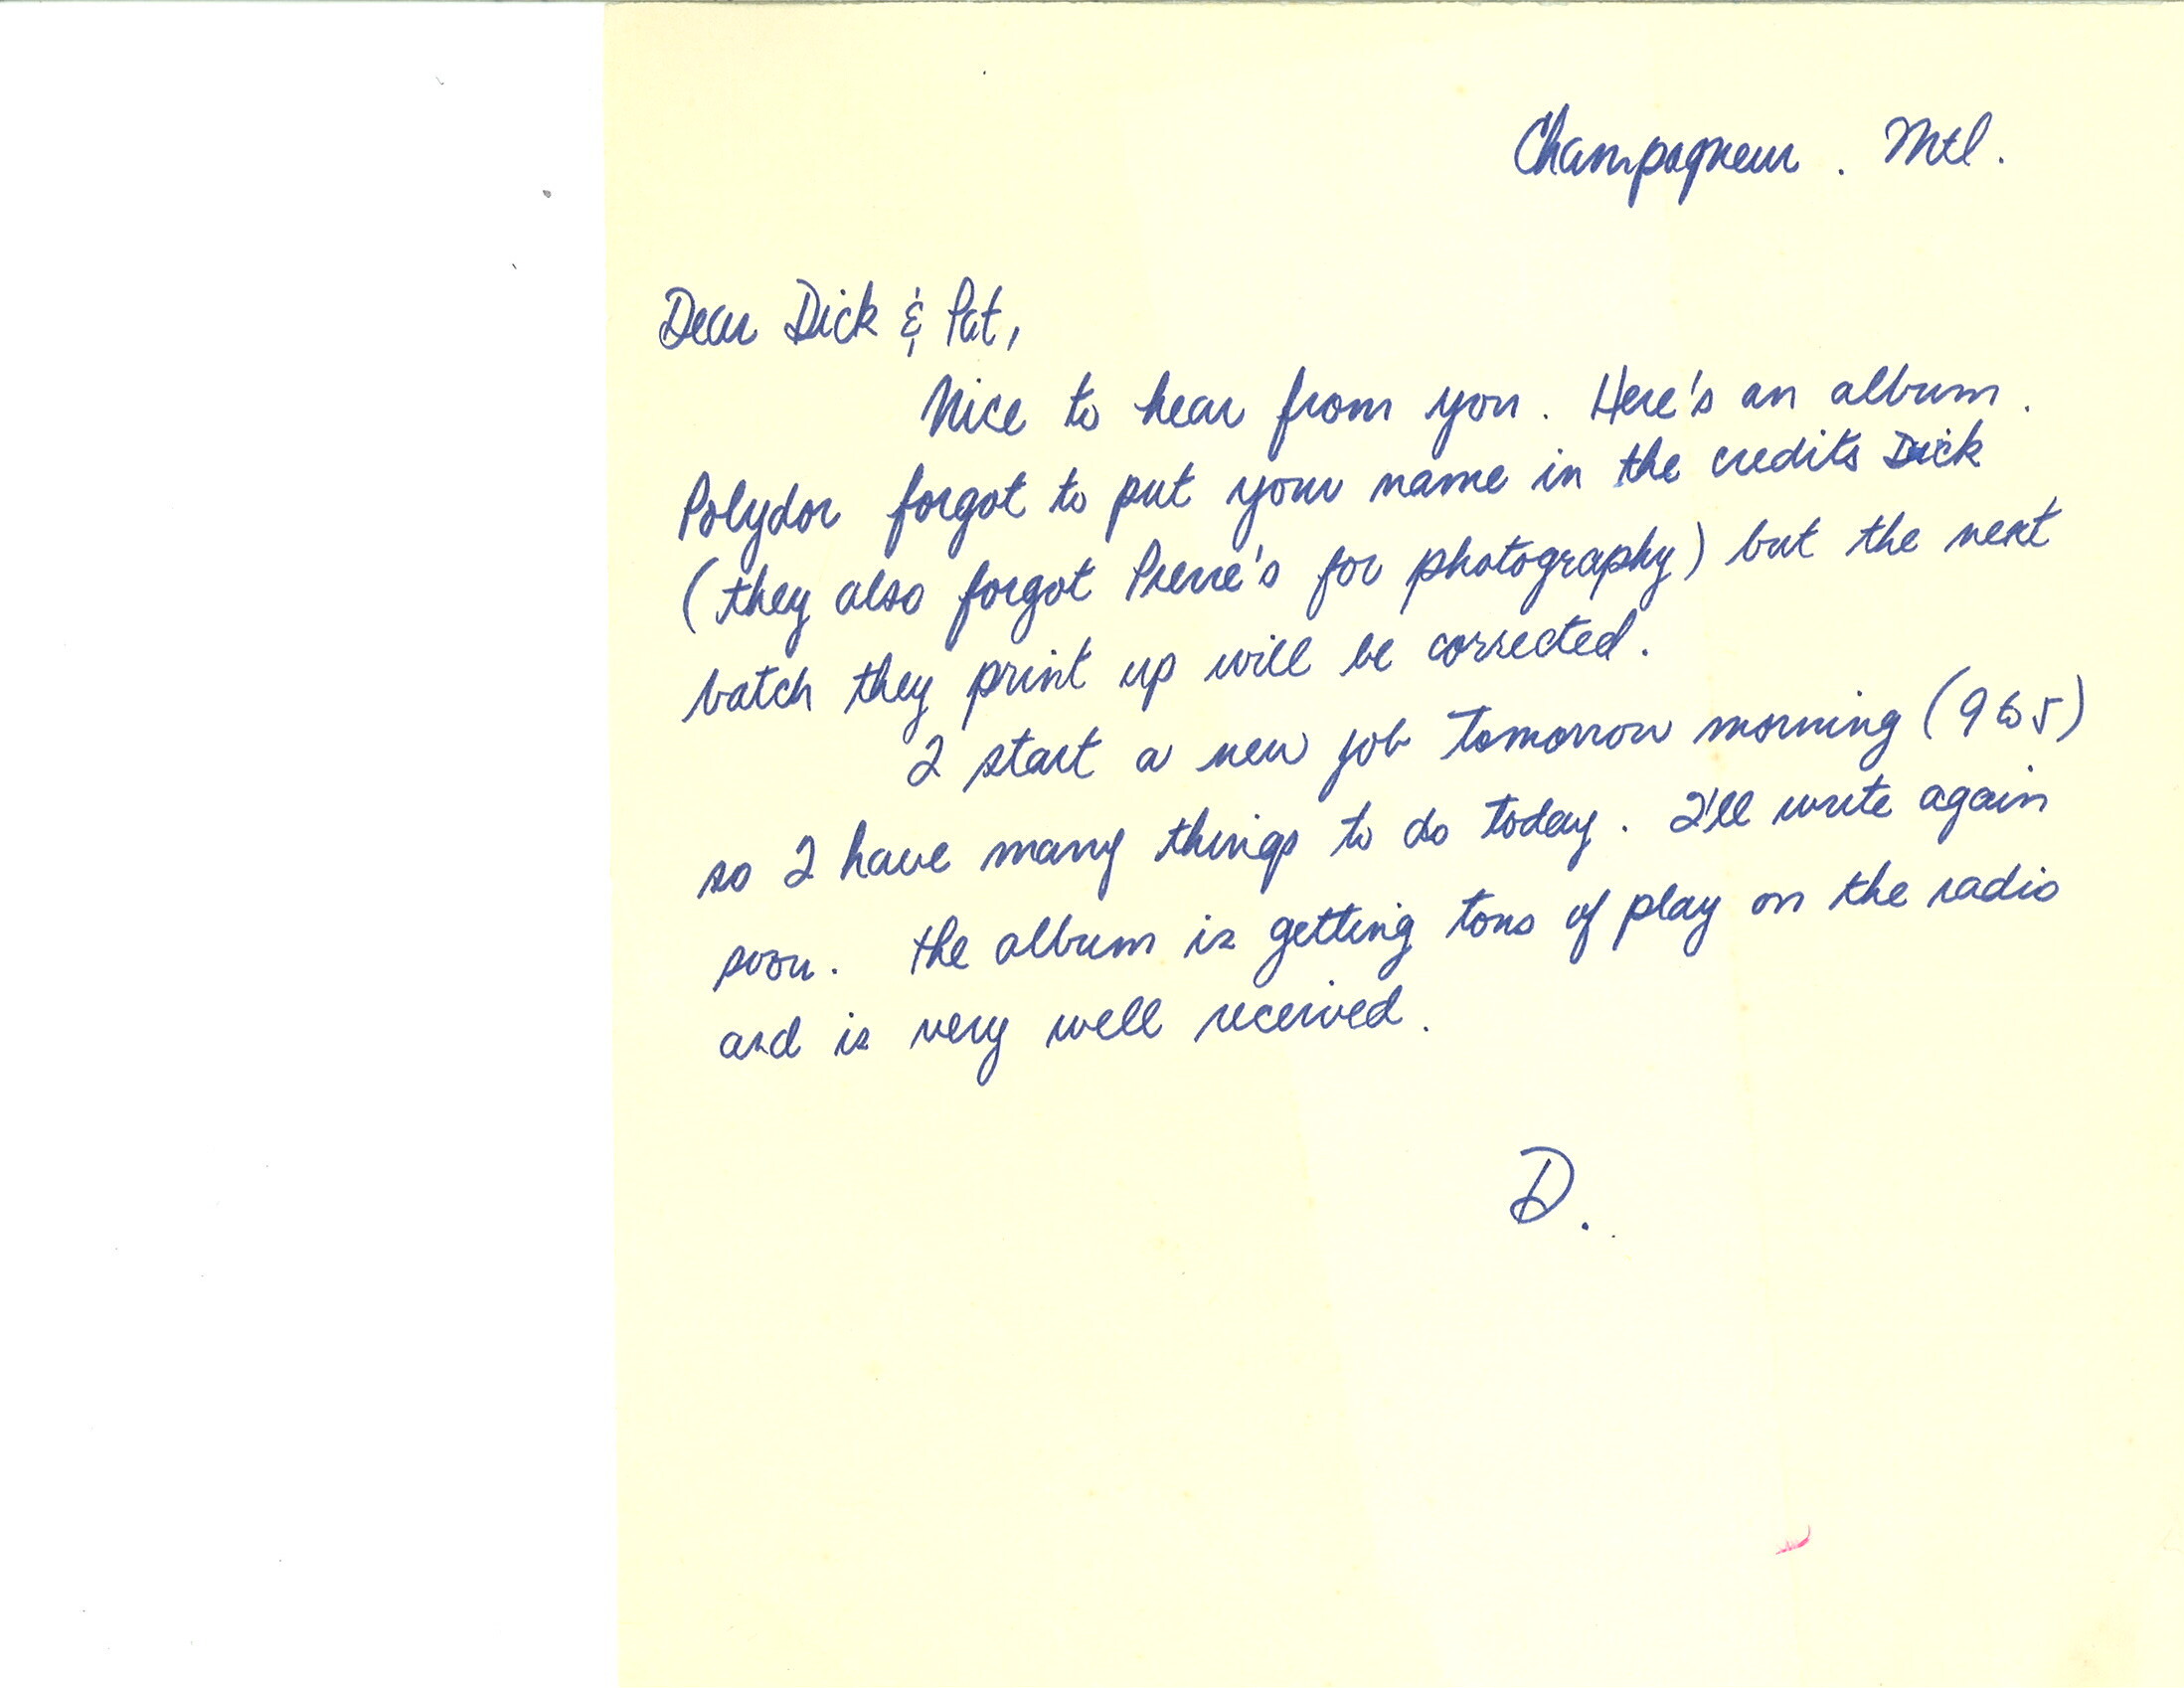 Champagneur. Mtl.
Dear Dick & Pat,
Nice to hear from you. Here's an album.
Polydor forgot to put your name in the credits Dick
(they also forgot Pierre's for photography) but the next
batch they print up will be corrected.
I start a new job tomorrow morning (9 to 5)
so I have many things to do today. I'll write again
soon. the album is getting tons of play on the radio
and is very well received.
D.